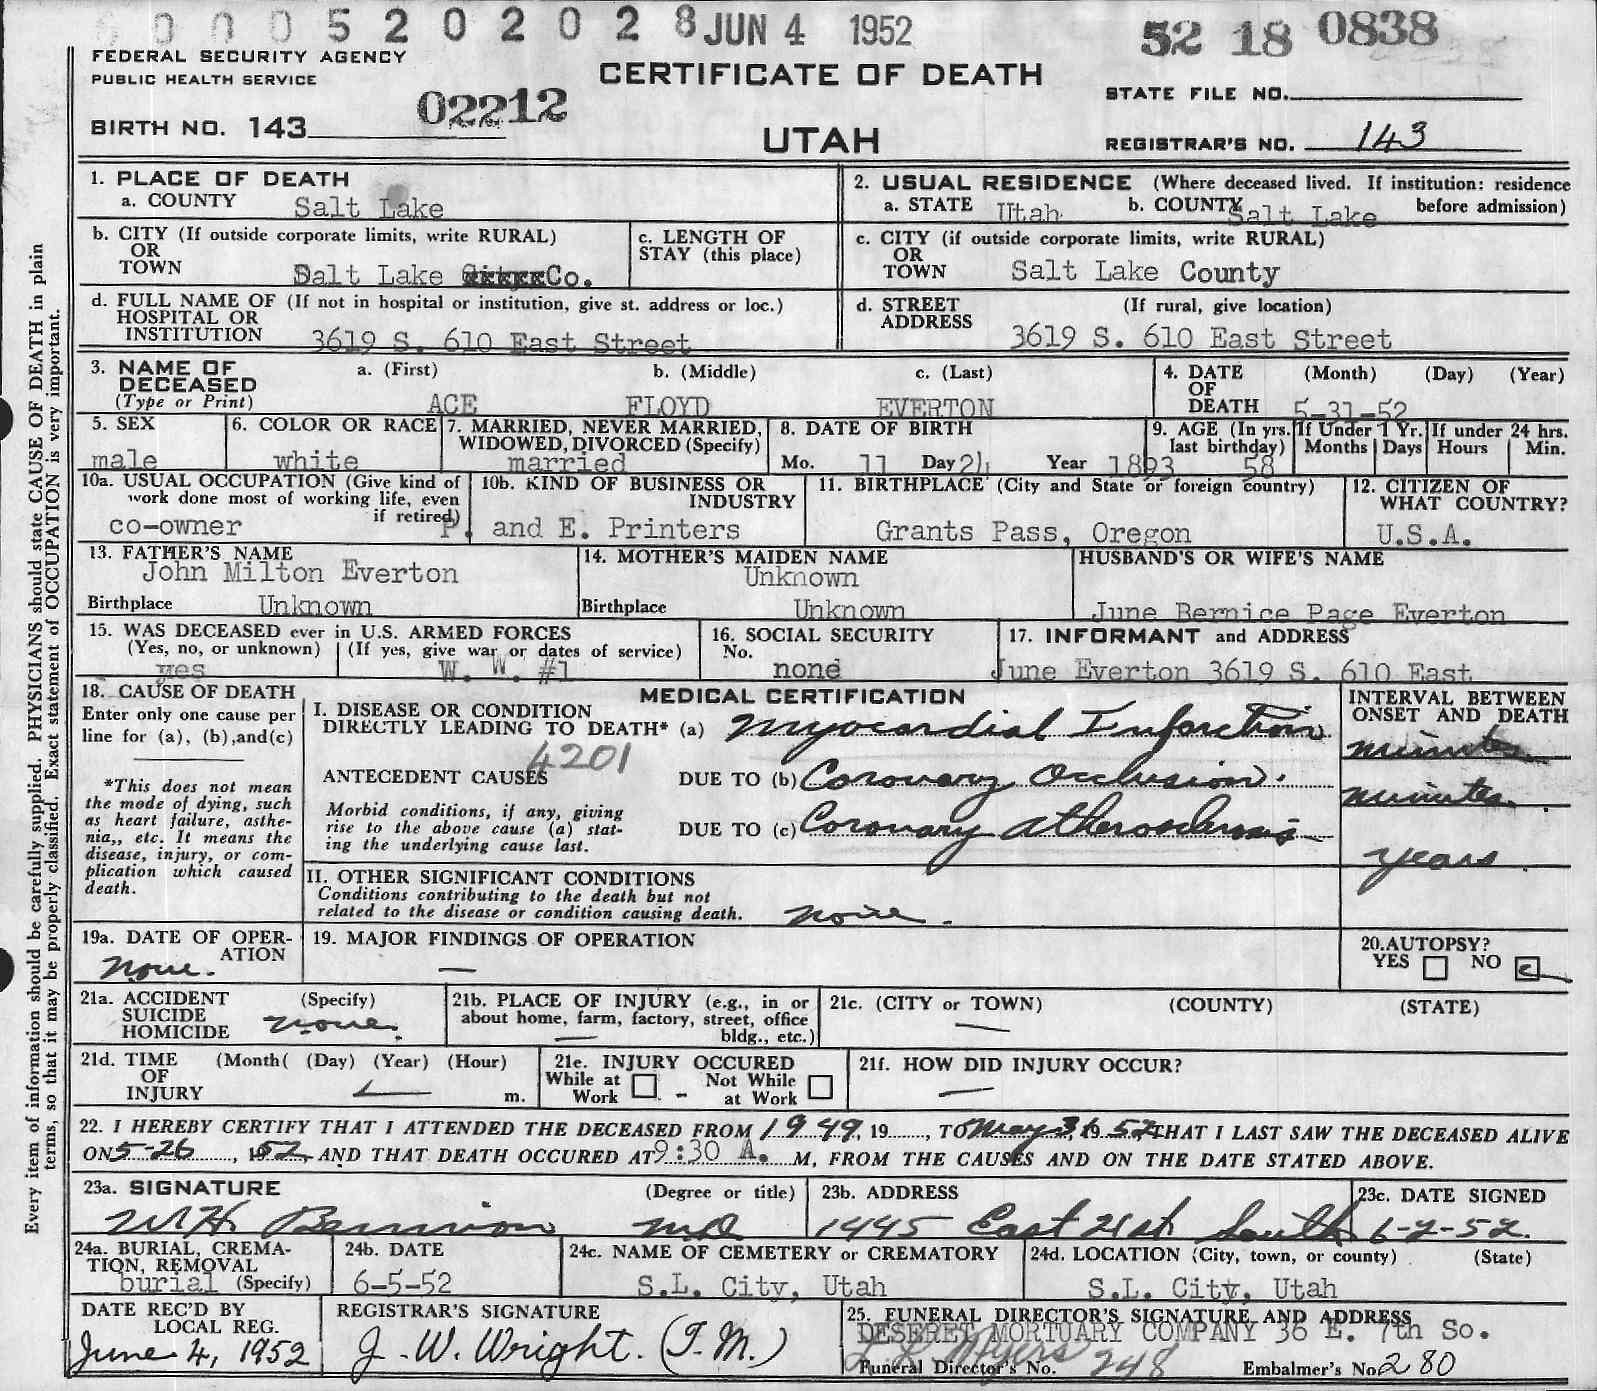 0 0 0 5 2 0 2 0 2 8 JUN 4 1952 52 18 0838
FEDERAL SECURITY AGENCY
PUBLIC HEALTH SERVICE
CERTIFICATE OF DEATH
STATE FILE NO.
02212
BIRTH NO. 143
UTAH
REGISTRAR'S NO. 143
1. PLACE OF DEATH
a. COUNTY Salt Lake
2. USUAL RESIDENCE (Where deceased lived. If institution: residence before admission)
a. STATE Utah b. COUNTY Salt Lake
b. CITY (If outside corporate limits, write RURAL)
OR
TOWN Salt Lake Co.
c. LENGTH OF
STAY (this place)
c. CITY (if outside corporate limits, write RURAL)
OR
TOWN Salt Lake County
d. FULL NAME OF (If not in hospital or institution, give st. address or loc.)
HOSPITAL OR
INSTITUTION 3619 S. 610 East Street
d. STREET (If rural, give location)
ADDRESS 3619 S. 610 East Street
3. NAME OF DECEASED
(Type or Print)
a. (First) b. (Middle) c. (Last)
ACE FLOYD EVERTON
4. DATE OF DEATH (Month) (Day) (Year)
5-31-52
5. SEX
male
6. COLOR OR RACE
white
7. MARRIED, NEVER MARRIED,
WIDOWED, DIVORCED (Specify)
married
8. DATE OF BIRTH
Mo. 11 Day 24 Year 1893
9. AGE (In yrs. last birthday) 58
If Under 1 Yr. Months Days
If under 24 hrs. Hours Min.
10a. USUAL OCCUPATION (Give kind of
work done most of working life, even
if retired)
co-owner
10b. KIND OF BUSINESS OR
INDUSTRY
P. and E. Printers
11. BIRTHPLACE (City and State or foreign country)
Grants Pass, Oregon
12. CITIZEN OF
WHAT COUNTRY?
U.S.A.
13. FATHER'S NAME
John Milton Everton
Birthplace Unknown
14. MOTHER'S MAIDEN NAME
Unknown
Birthplace Unknown
HUSBAND'S OR WIFE'S NAME
June Bernice Page Everton
15. WAS DECEASED ever in U.S. ARMED FORCES
(Yes, no, or unknown) (If yes, give war or dates of service)
yes W. W. #1
16. SOCIAL SECURITY
No.
none
17. INFORMANT and ADDRESS
June Everton 3619 S. 610 East
18. CAUSE OF DEATH
Enter only one cause per
line for (a), (b),and(c)
*This does not mean
the mode of dying, such
as heart failure, asthe-
nia,, etc. It means the
disease, injury, or com-
plication which caused
death.
MEDICAL CERTIFICATION
INTERVAL BETWEEN
ONSET AND DEATH
I. DISEASE OR CONDITION
DIRECTLY LEADING TO DEATH* (a) Myocardial Infarction minutes
4201
ANTECEDENT CAUSES DUE TO (b) Coronary Occlusion. minutes.
Morbid conditions, if any, giving
rise to the above cause (a) stat-
ing the underlying cause last.
DUE TO (c) Coronary Atherosclerosis years
II. OTHER SIGNIFICANT CONDITIONS
Conditions contributing to the death but not
related to the disease or condition causing death. none.
19a. DATE OF OPER-
ATION
none.
19. MAJOR FINDINGS OF OPERATION
—
20.AUTOPSY?
YES NO
21a. ACCIDENT (Specify)
SUICIDE
HOMICIDE none.
21b. PLACE OF INJURY (e.g., in or
about home, farm, factory, street, office
bldg., etc.)
—
21c. (CITY or TOWN) (COUNTY) (STATE)
—
21d. TIME (Month( (Day) (Year) (Hour)
OF
INJURY m.
21e. INJURY OCCURED
While at Work - Not While at Work
21f. HOW DID INJURY OCCUR?
—
22. I HEREBY CERTIFY THAT I ATTENDED THE DECEASED FROM 1949, 19, TO May 31 19 52 THAT I LAST SAW THE DECEASED ALIVE
ON 5-26, 1952, AND THAT DEATH OCCURED AT 9:30 A. M, FROM THE CAUSES AND ON THE DATE STATED ABOVE.
23a. SIGNATURE (Degree or title)
WH Bennion MD
23b. ADDRESS
1445 East 21st South
23c. DATE SIGNED
6-2-52.
24a. BURIAL, CREMA-
TION, REMOVAL
burial (Specify)
24b. DATE
6-5-52
24c. NAME OF CEMETERY or CREMATORY
S.L. City, Utah
24d. LOCATION (City, town, or county) (State)
S.L. City, Utah
DATE REC'D BY
LOCAL REG.
June 4, 1952
REGISTRAR'S SIGNATURE
J. W. Wright. (T.M.)
25. FUNERAL DIRECTOR'S SIGNATURE AND ADDRESS
DESERET MORTUARY COMPANY 36 E. 7th So.
Myers
Funeral Director's No. 248 Embalmer's No. 280
Every item of information should be carefully supplied. PHYSICIANS should state CAUSE OF DEATH in plain
terms, so that it may be properly classified. Exact statement of OCCUPATION is very important.